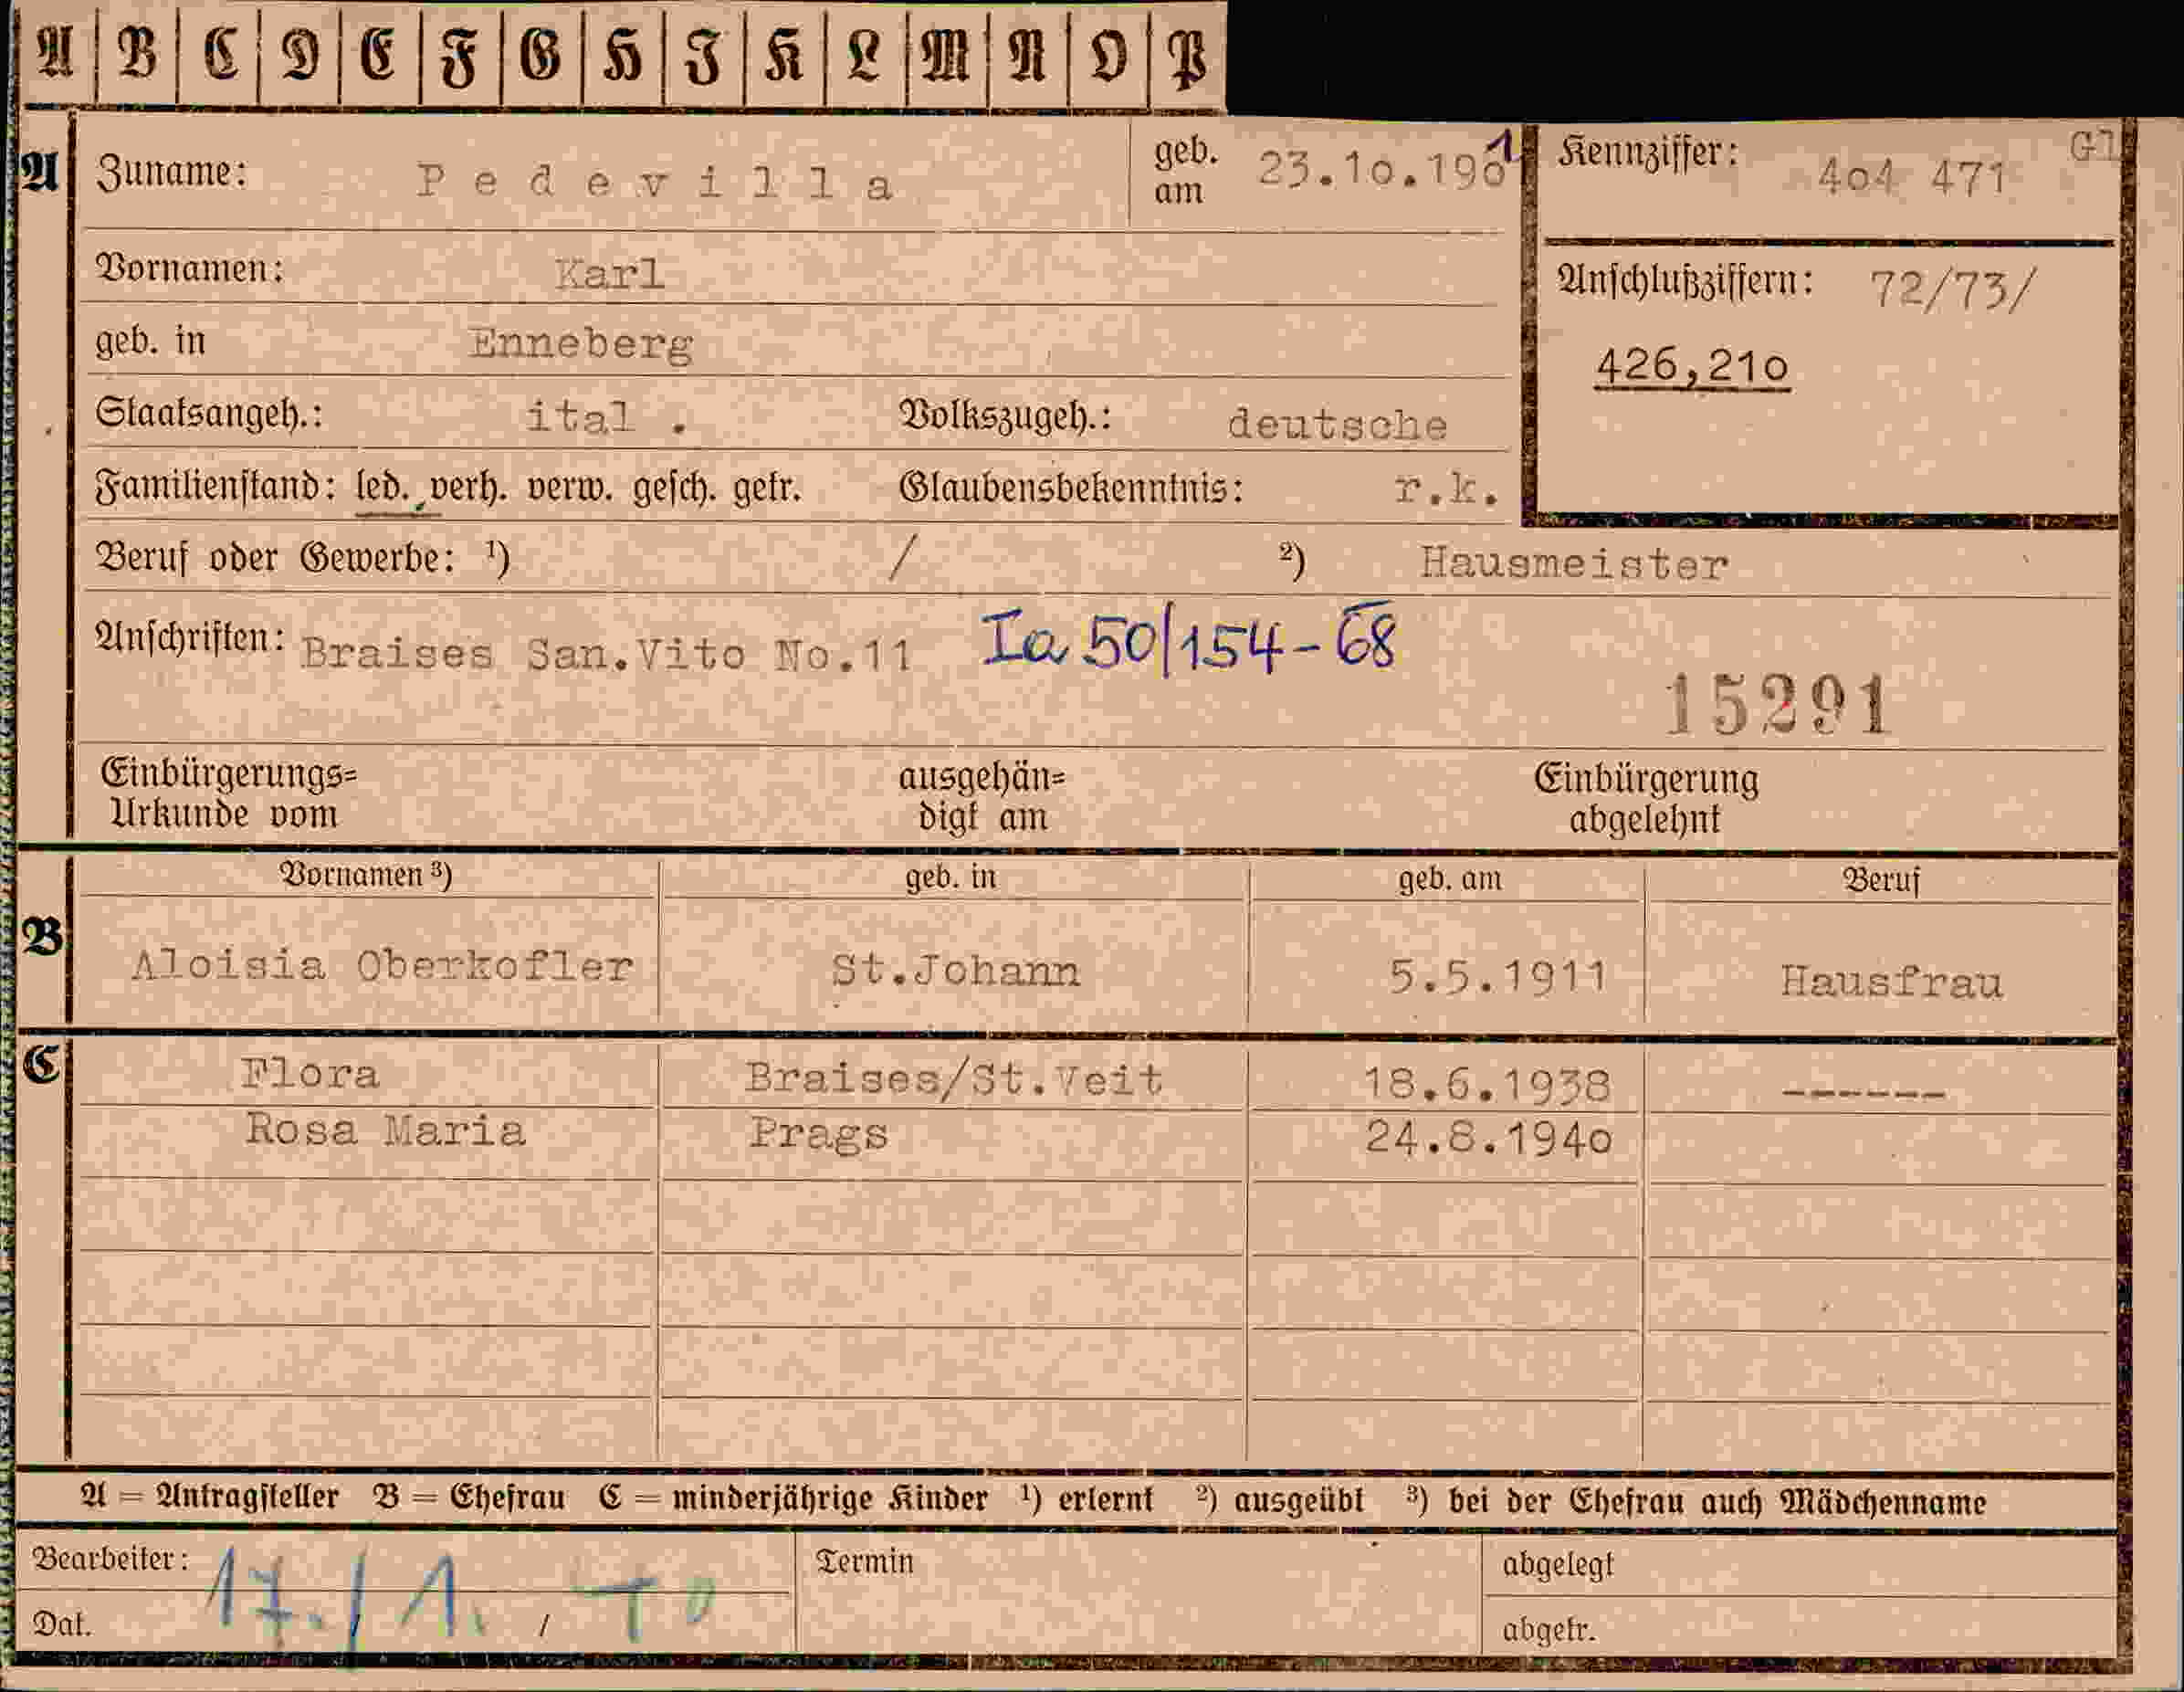 A B C D E F G H I K L M N O P
A Zuname: Pedevilla geb. am 23.10.1901 Kennziffer: 404 471 Gl
Vornamen: Karl Anschlußziffern: 72/73/
geb. in Enneberg 426,210
Staatsangeh.: ital . Volkszugeh.: deutsche
Familienstand: led. verh. verw. gesch. getr. Glaubensbekenntnis: r.k.
Beruf oder Gewerbe: ¹) / ²) Hausmeister
Anschriften: Braises San.Vito No.11 Ia 50/154-68
15291
Einbürgerungs= ausgehän= Einbürgerung
Urkunde vom digt am abgelehnt
Vornamen ³) geb. in geb. am Beruf
B Aloisia Oberkofler St.Johann 5.5.1911 Hausfrau
C Flora Braises/St.Veit 18.6.1938 ------
Rosa Maria Prags 24.8.1940
A = Antragsteller B = Ehefrau C = minderjährige Kinder ¹) erlernt ²) ausgeübt ³) bei der Ehefrau auch Mädchenname
Bearbeiter: 17./1. / TO Termin abgelegt
Dat. abgetr.